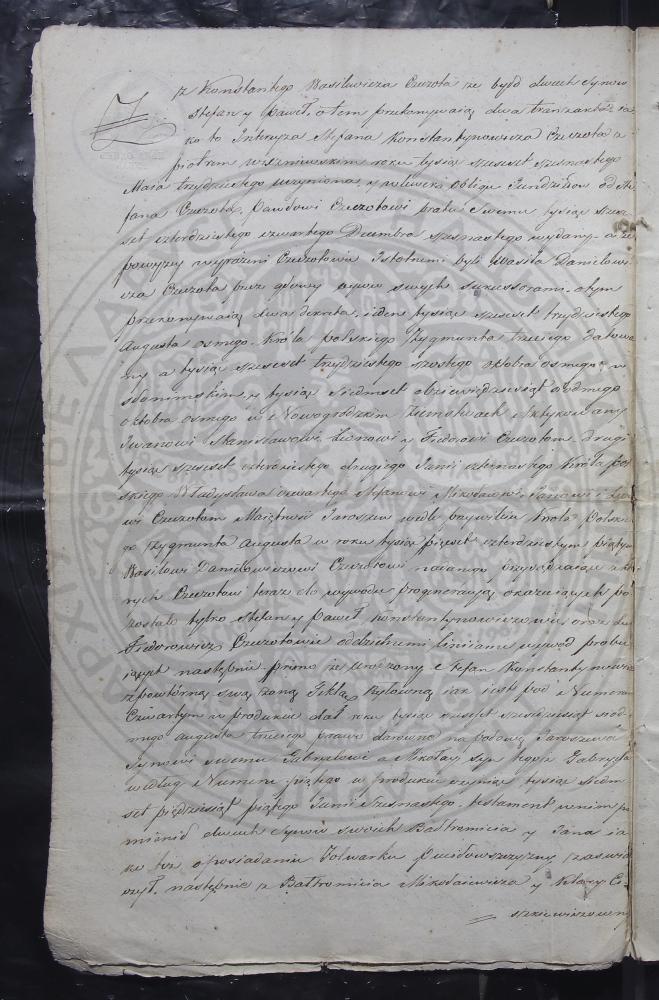 z Konstantego Wasilewicza Czeczota że było dwuch synow
Stefan y Paweł, o tem przekonywaią dwa tranzakta ia
ko to Interyza Stefana Konstantynowicza Czeczota z
piotrem wiszniewskim roku tysiąc szeset szesnastego
Maia trzydziestego uczyniona, y oblig od Ste
fana Czeczota Pawłowi Czeczotowi bratu swemu tysiąc sze
set czterdziestego czwartego Decembra szesnastego wydany a że
powyżey wyrażeni Czeczotowie Istotnemi byli Wasila Danielowi
cza Czeczota przez głowy oycow swych sukcessorami. o tym
przekonywaią dwa dekreta, ieden tysiąc szeset trzydziestego
Augusta osmego Króla polskiego Zygmunta trzeciego datowa
ny a tysiąc szeset trzydziestego szostego oktobra osmego w
słonimskim, y tysiąc siedmset dziewięćdziesiąt siodmego
oktobra osmego w Nowogrodzkim Ziemstwach aktykowany
Iwanowi Stanisławowi y Fiedorowi Czeczotom, drugi
tysiąc szeset czterdziestego drugiego Junii czternastego Króla pol
skiego Władysława czwartego Stefanowi Mikołaiowi Janowi i
wi Czeczotom Maiętność Jaroszew wedle przywileiu króla Polskie
go Zygmunta Augusta w roku tysiąc pięćset czterdziestym piątym
Wasilowi Danielowiczowi Czeczotowi nadanego przysądzaiące z kto
rych Czeczotow teraz do wywodu progeneracyą okazuiących po
zostało tylko Stefan y Paweł Konstantynowiczowie oraz
Fiedorowicz Czeczotowie oddzielnemi liniami wywod probu
iących następnie primo że urodzony Stefan Konstantynowicz
z powtórną swą żoną Teklą iak iest pod Numerem
Czwartym w produkcie dał roku tysiąc szeset sześćdziesiąt siod
mego augusta trzeciego prawo darowne na połowę Jaroszewa
Synowi swemu Gabryelowi a Mikołay syn tegoż Gabryela
według Numeru piątego w produkcie tysiąc siedm
set pięćdziesiąt piątego Junii szesnastego, testament w nim po
mienił dwuch synow swoich Bałtromieia y Jana ia
ko też o posiadaniu folwarku zaswiad
czył. następnie z Bałtromieia Mikołaiewicza y
szkiewiczowen